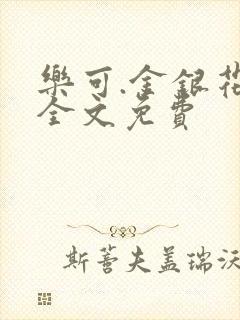 樂可.金銀花
全文免費
斯蒈夫盖瑞沃